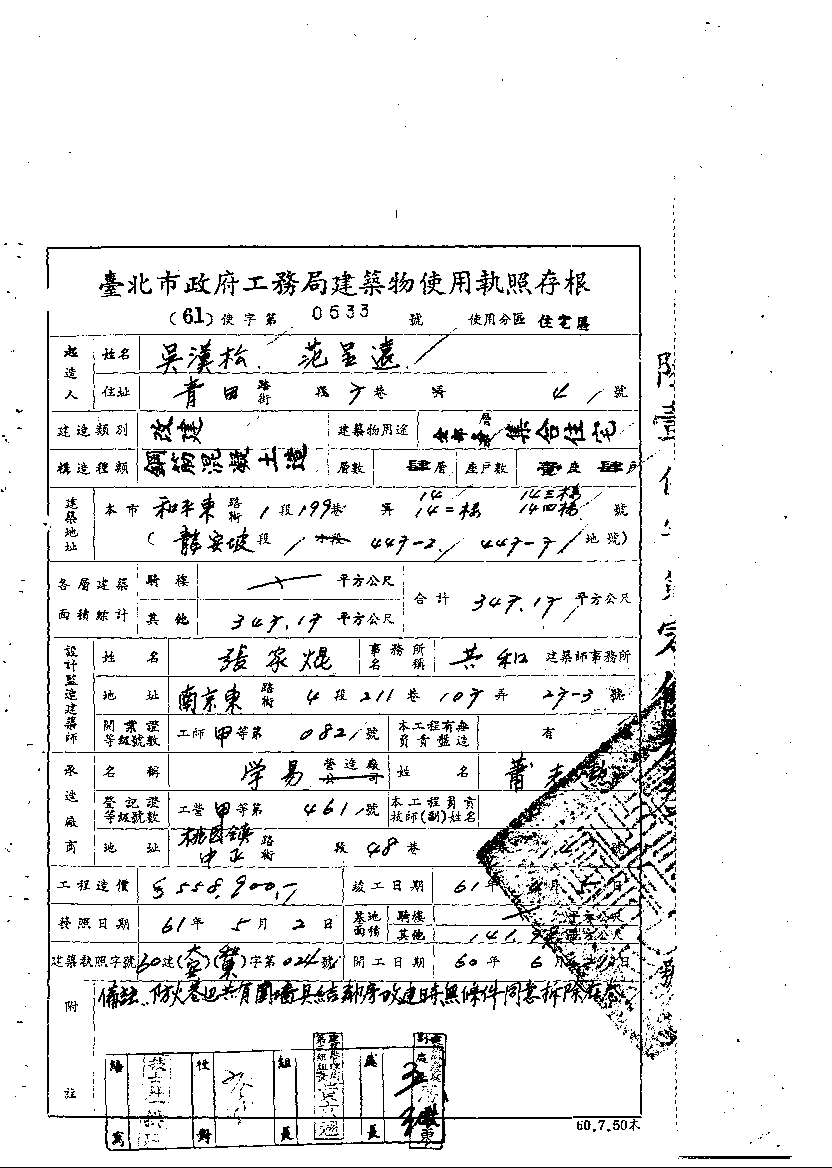 臺北市政府工務局建築物使用執照存根
(61)使字第 0533 號 使用分區 住宅區
起造人 姓名 吳漢松 范呈遠
住址 青田 路街 段 5 巷 弄 4 號
建造類別 改建 建築物用途 集合住宅
構造種類 鋼筋混凝土造 層數 肆層 座戶數 壹座 肆戶
建築地址 本市 和平東 路街 1 段 199 巷 弄 14 14二樓 14三樓 14四樓 號
(龍安坡 段 小段 445-2 445-5 地號)
各層建築面積綜計 騎樓 平方公尺 合計 345.15 平方公尺
其他 345.15 平方公尺
設計監造建築師 姓名 張家焜 事務所名稱 共和 建築師事務所
地址 南京東 路街 4 段 211 巷 105 弄 25-3 號
開業證等級號數 工師 甲 等第 0821 號 本工程有無負責監造 有
承造廠商 名稱 学易 營造廠公司 姓名
登記證等級號數 工營 甲 等第 461 號 本工程負責技師(副)姓名
地址 桃園鎮中正 路街 段 48 巷 號
工程造價 $558,900.- 竣工日期 61 年 月 日
發照日期 61 年 5 月 2 日 基地面積 騎樓 平方公尺
其他 平方公尺
建築執照字號 60 建 字第 024 號 開工日期 60 年 6 月 日
附註 備註: 防火巷 共有圍牆具結 改建時無條件同意拆除
繕寫 校對 組長 處長
60.7.50本